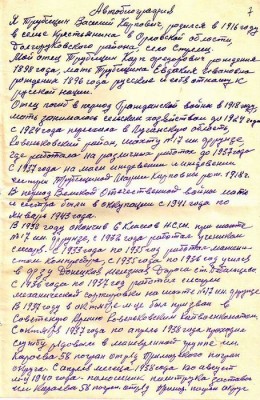 7
Автобиография
Я Трубицин Василий Карпович, родился в 1916 году
в селе Крестьянина в Орловской области,
Долгоруковского района, село Стрелец.
Мой отец Трубицин Карп Федорович рождения
1898 года, мать Трубицина Евдокия Ивановна
рождения 1896 года русские и себя отношу к
русской нации.
Отец погиб в период Гражданской войны в 1918 году,
мать занималась сельским хозяйством до 1924 года
с 1924 года переехала в Луганскую область,
район, шахту №17 им
где работала на различных работах до 1937 года
С 1937 года на моем иждивении и иждивении
сестры Трубициной Марии Карповны рож. 1918 г.
В период Великой Отечественной войны мать
и сестра были в оккупации с 1941 года по
января 1943 года.
В 1932 году окончил 6 классов Н.С.Ш. при шахте
№17 им с 1932 года работал учеником
слесаря с 1933 года по 1935 год работал
с 1935 года по 1936 год учился
в ФЗУ Донецкой железной дороги ст.
С 1936 года по 1937 год работал слесарем
механической на шахте №17 им
В 1937 году в октябре м-це был призван в
Советскую Армию военкоматом.
С октября 1937 года по апрель 1938 года проходил
службу рядовым в маневренной группе им.
Караева 58 погран отряд Приморского погран
округа. С апреля месяца 1938 года по август
м-ц 1940 года - помощник политрука заставы
им Караева 58 погран отряд погран округа